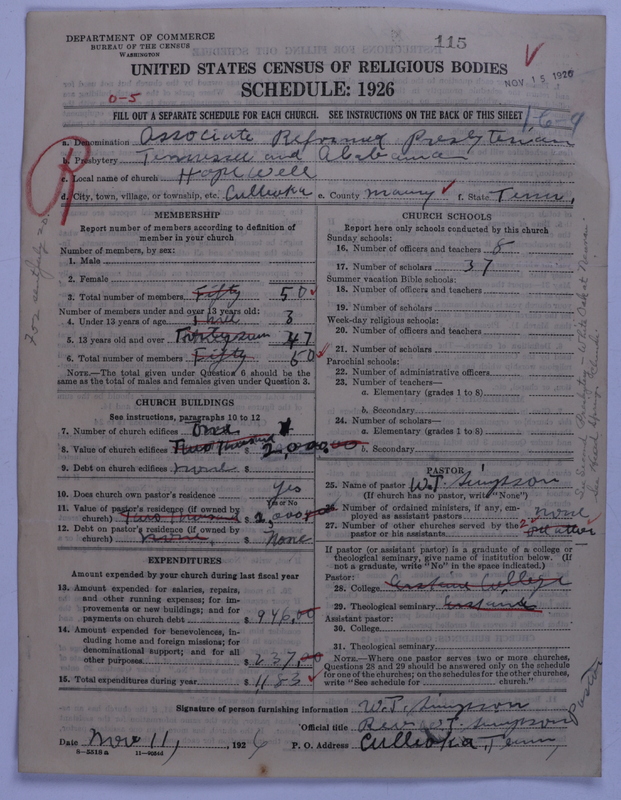 DEPARTMENT OF COMMERCE
BUREAU OF THE CENSUS
WASHINGTON
115
NOV 15 1926
UNITED STATES CENSUS OF RELIGIOUS BODIES
SCHEDULE: 1926
0-5
FILL OUT A SEPARATE SCHEDULE FOR EACH CHURCH. SEE INSTRUCTIONS ON THE BACK OF THIS SHEET
1-6-9
R
a. Denomination Associate Reformed Presbyterian
b. Presbytery Tennessee and Alabama
c. Local name of church Hope Well
d. City, town, village, or township, etc. Culleoka e. County Maury f. State Tenn.
MEMBERSHIP
Report number of members according to definition of
member in your church
Number of members, by sex:
1. Male
2. Female
3. Total number of members Fifty 50
Number of members under and over 13 years old:
4. Under 13 years of age 3
5. 13 years old and over 47
6. Total number of members Fifty 50
NOTE.—The total given under Question 6 should be the
same as the total of males and females given under Question 3.
CHURCH BUILDINGS
See instructions, paragraphs 10 to 12
7. Number of church edifices One 1
8. Value of church edifices Two Thousand $ 2,000.00
9. Debt on church edifices none $
10. Does church own pastor's residence Yes
Yes or No
11. Value of pastor's residence (if owned by
church) Two Thousand $ 2,000
12. Debt on pastor's residence (if owned by
church) none $ None
EXPENDITURES
Amount expended by your church during last fiscal year
13. Amount expended for salaries, repairs,
and other running expenses; for im-
provements or new buildings; and for
payments on church debt $ 946.00
14. Amount expended for benevolences, in-
cluding home and foreign missions; for
denominational support; and for all
other purposes $ 237.00
15. Total expenditures during year $ 1183
CHURCH SCHOOLS
Report here only schools conducted by this church
Sunday schools:
16. Number of officers and teachers
17. Number of scholars 37
Summer vacation Bible schools:
18. Number of officers and teachers
19. Number of scholars
Week-day religious schools:
20. Number of officers and teachers
21. Number of scholars
Parochial schools:
22. Number of administrative officers
23. Number of teachers—
a. Elementary (grades 1 to 8)
b. Secondary
24. Number of scholars—
a. Elementary (grades 1 to 8)
b. Secondary
PASTOR
25. Name of pastor W.T. Simpson
(If church has no pastor, write "None")
26. Number of ordained ministers, if any, em-
ployed as assistant pastors none
27. Number of other churches served by the 2
pastor or his assistants
If pastor (or assistant pastor) is a graduate of a college or
theological seminary, give name of institution below. (If
not a graduate, write "No" in the space indicated.)
Pastor:
28. College Erskine College
29. Theological seminary Erskine
Assistant pastor:
30. College
31. Theological seminary
NOTE.—Where one pastor serves two or more churches,
Questions 28 and 29 should be answered only on the schedule
for one of the churches; on the schedules for the other churches,
write "See schedule for church."
Signature of person furnishing information W.T. Simpson
Official title Rev. W.T. Simpson Pastor
Date Nov 11, 1926 P. O. Address Culleoka, Tenn,
8-5518a 11-9054d